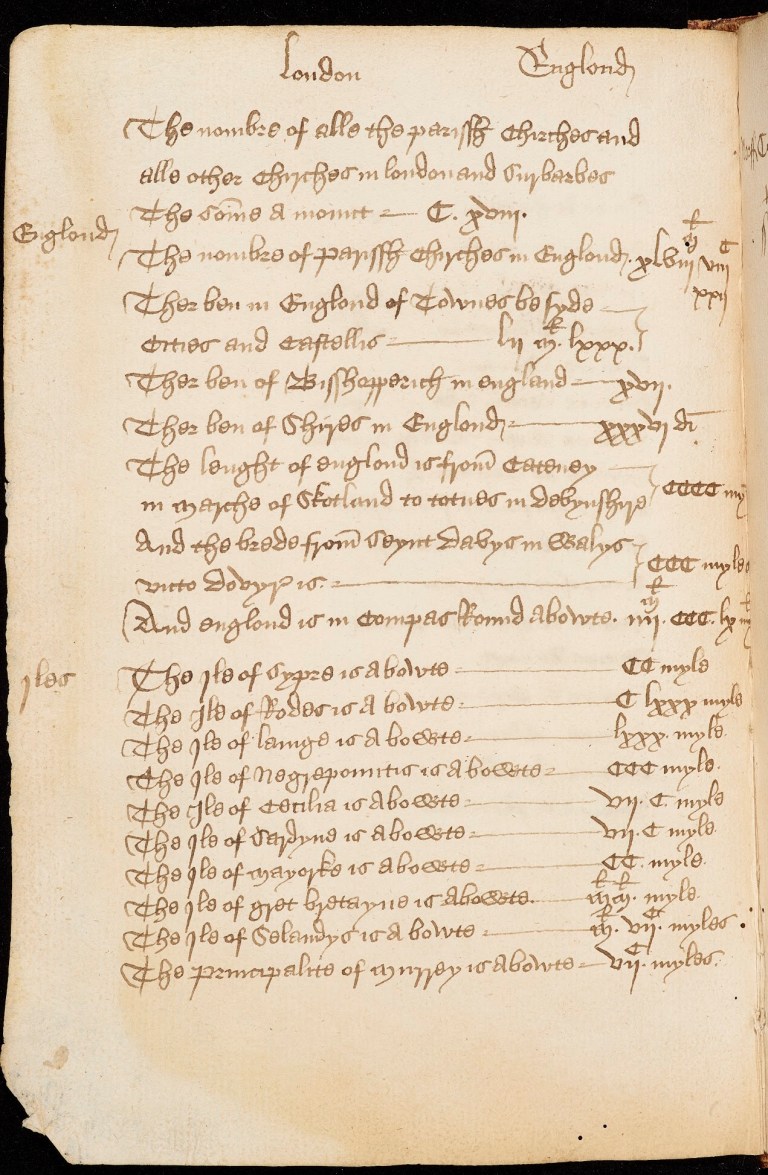 London Englond
The nombre of alle the parissh Chirches and
alle other Chirches in london and Surbarbes
The Some A mount C. xviij.
Englond
The nombre of parissh Chirches in Englond. xlviij viij xxij
Ther ben in Englond of Townes be syde
Cities and Castellis lij m. lxxx.
Ther ben of Bisshepperich in england xvij.
Ther ben of Shires in Englond xxxvj di
The lenght of englond is from Cateney
in marche of Skotland to totnes in devynshire CCCC my
And the brede from Seynt Davys in Walys
vnto Dovyr is. CCC myles
And england is in Compas Round abowte. iiij. CCC. lx
Iles
The Ile of Cypre is abowte CC myle
The Ile of Rodes is A bowte C lxxx myle
The Ile of lange is A bowte lxxx. myle.
The Ile of Negrepountis is abowte CCC myle.
The Ile of Cecilia is abowte vij. C. myle
The Ile of Sardyne is abowte vij. C myle
The Ile of mayorke is abowte CC. myle.
The Ile of gret bretayne is abowte. mm. myle.
The Ile of Selandys is A bowte m. vij. C myles
The principalite of murrey is abowte vij. C myles.